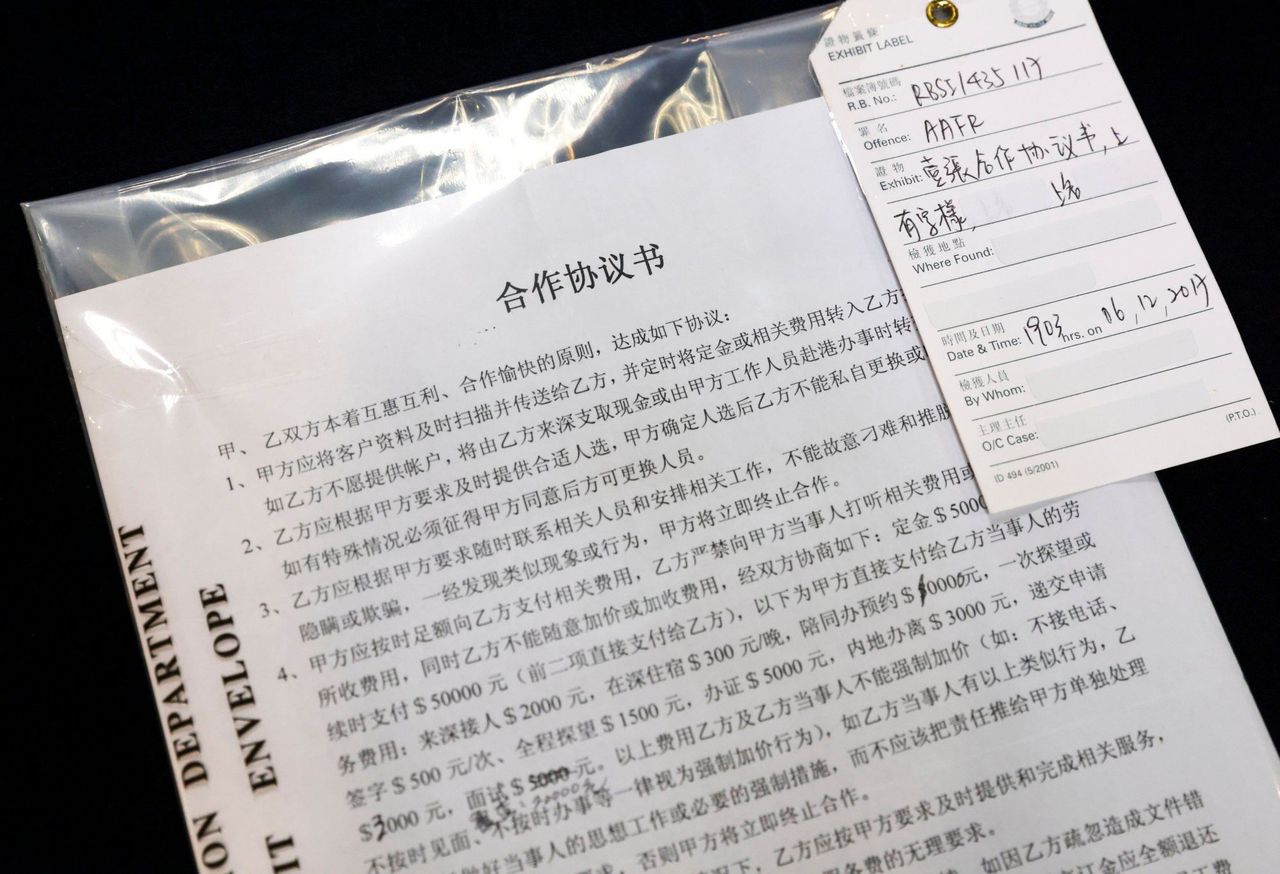 證物籤條
EXHIBIT LABEL
檔案簿號碼
R.B. No.: RBS51435 117
罪名
Offence: AAFR
證物
Exhibit: 壹張合作协议书,上
有字樣,
檢獲地點
Where Found:
時間及日期
Date & Time: 1903 hrs. on 06,12,2017
檢獲人員
By Whom:
主理主任
O/C Case:
(P.T.O.)
ID 494 (5/2001)
合作协议书
甲、 乙双方本着互惠互利、合作愉快的原则,达成如下协议:
1、甲方应将客户资料及时扫描并传送给乙方,并定时将定金或相关费用转入乙方
如乙方不愿提供帐户,将由乙方来深支取现金或由甲方工作人员赴港办事时转
2、乙方应根据甲方要求及时提供合适人选,甲方确定人选后乙方不能私自更换或
如有特殊情况必须征得甲方同意后方可更换人员。
3、乙方应根据甲方要求随时联系相关人员和安排相关工作,不能故意刁难和推脱
隐瞒或欺骗,一经发现类似现象或行为,甲方将立即终止合作。
4、甲方应按时足额向乙方支付相关费用,乙方严禁向甲方当事人打听相关费用或
所收费用,同时乙方不能随意加价或加收费用,经双方协商如下:定金$5000
续时支付$50000元(前二项直接支付给乙方),以下为甲方直接支付给乙方当事人的劳
务费用:来深接人$2000元,在深住宿$300元/晚,陪同办预约$10000元,一次探望或
签字$500元/次、全程探望$1500元,办证$5000元,内地办离$3000元,递交申请
$3000元,面试$5000元。以上费用乙方及乙方当事人不能强制加价(如:不接电话、
不按时见面、不按时办事等一律视为强制加价行为),如乙方当事人有以上类似行为,乙
做好当事人的思想工作或必要的强制措施,而不应该把责任推给甲方单独处理
要求,否则甲方将立即终止合作。
情况下,乙方应按甲方要求及时提供和完成相关服务,
服务费的无理要求。
如因乙方疏忽造成文件错
订金应全额退还
ON DEPARTMENT
IT ENVELOPE